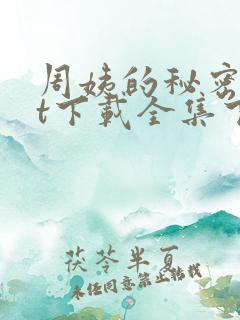 周姨的秘密
t下载全集
茯苓半夏
未经同意禁止转载